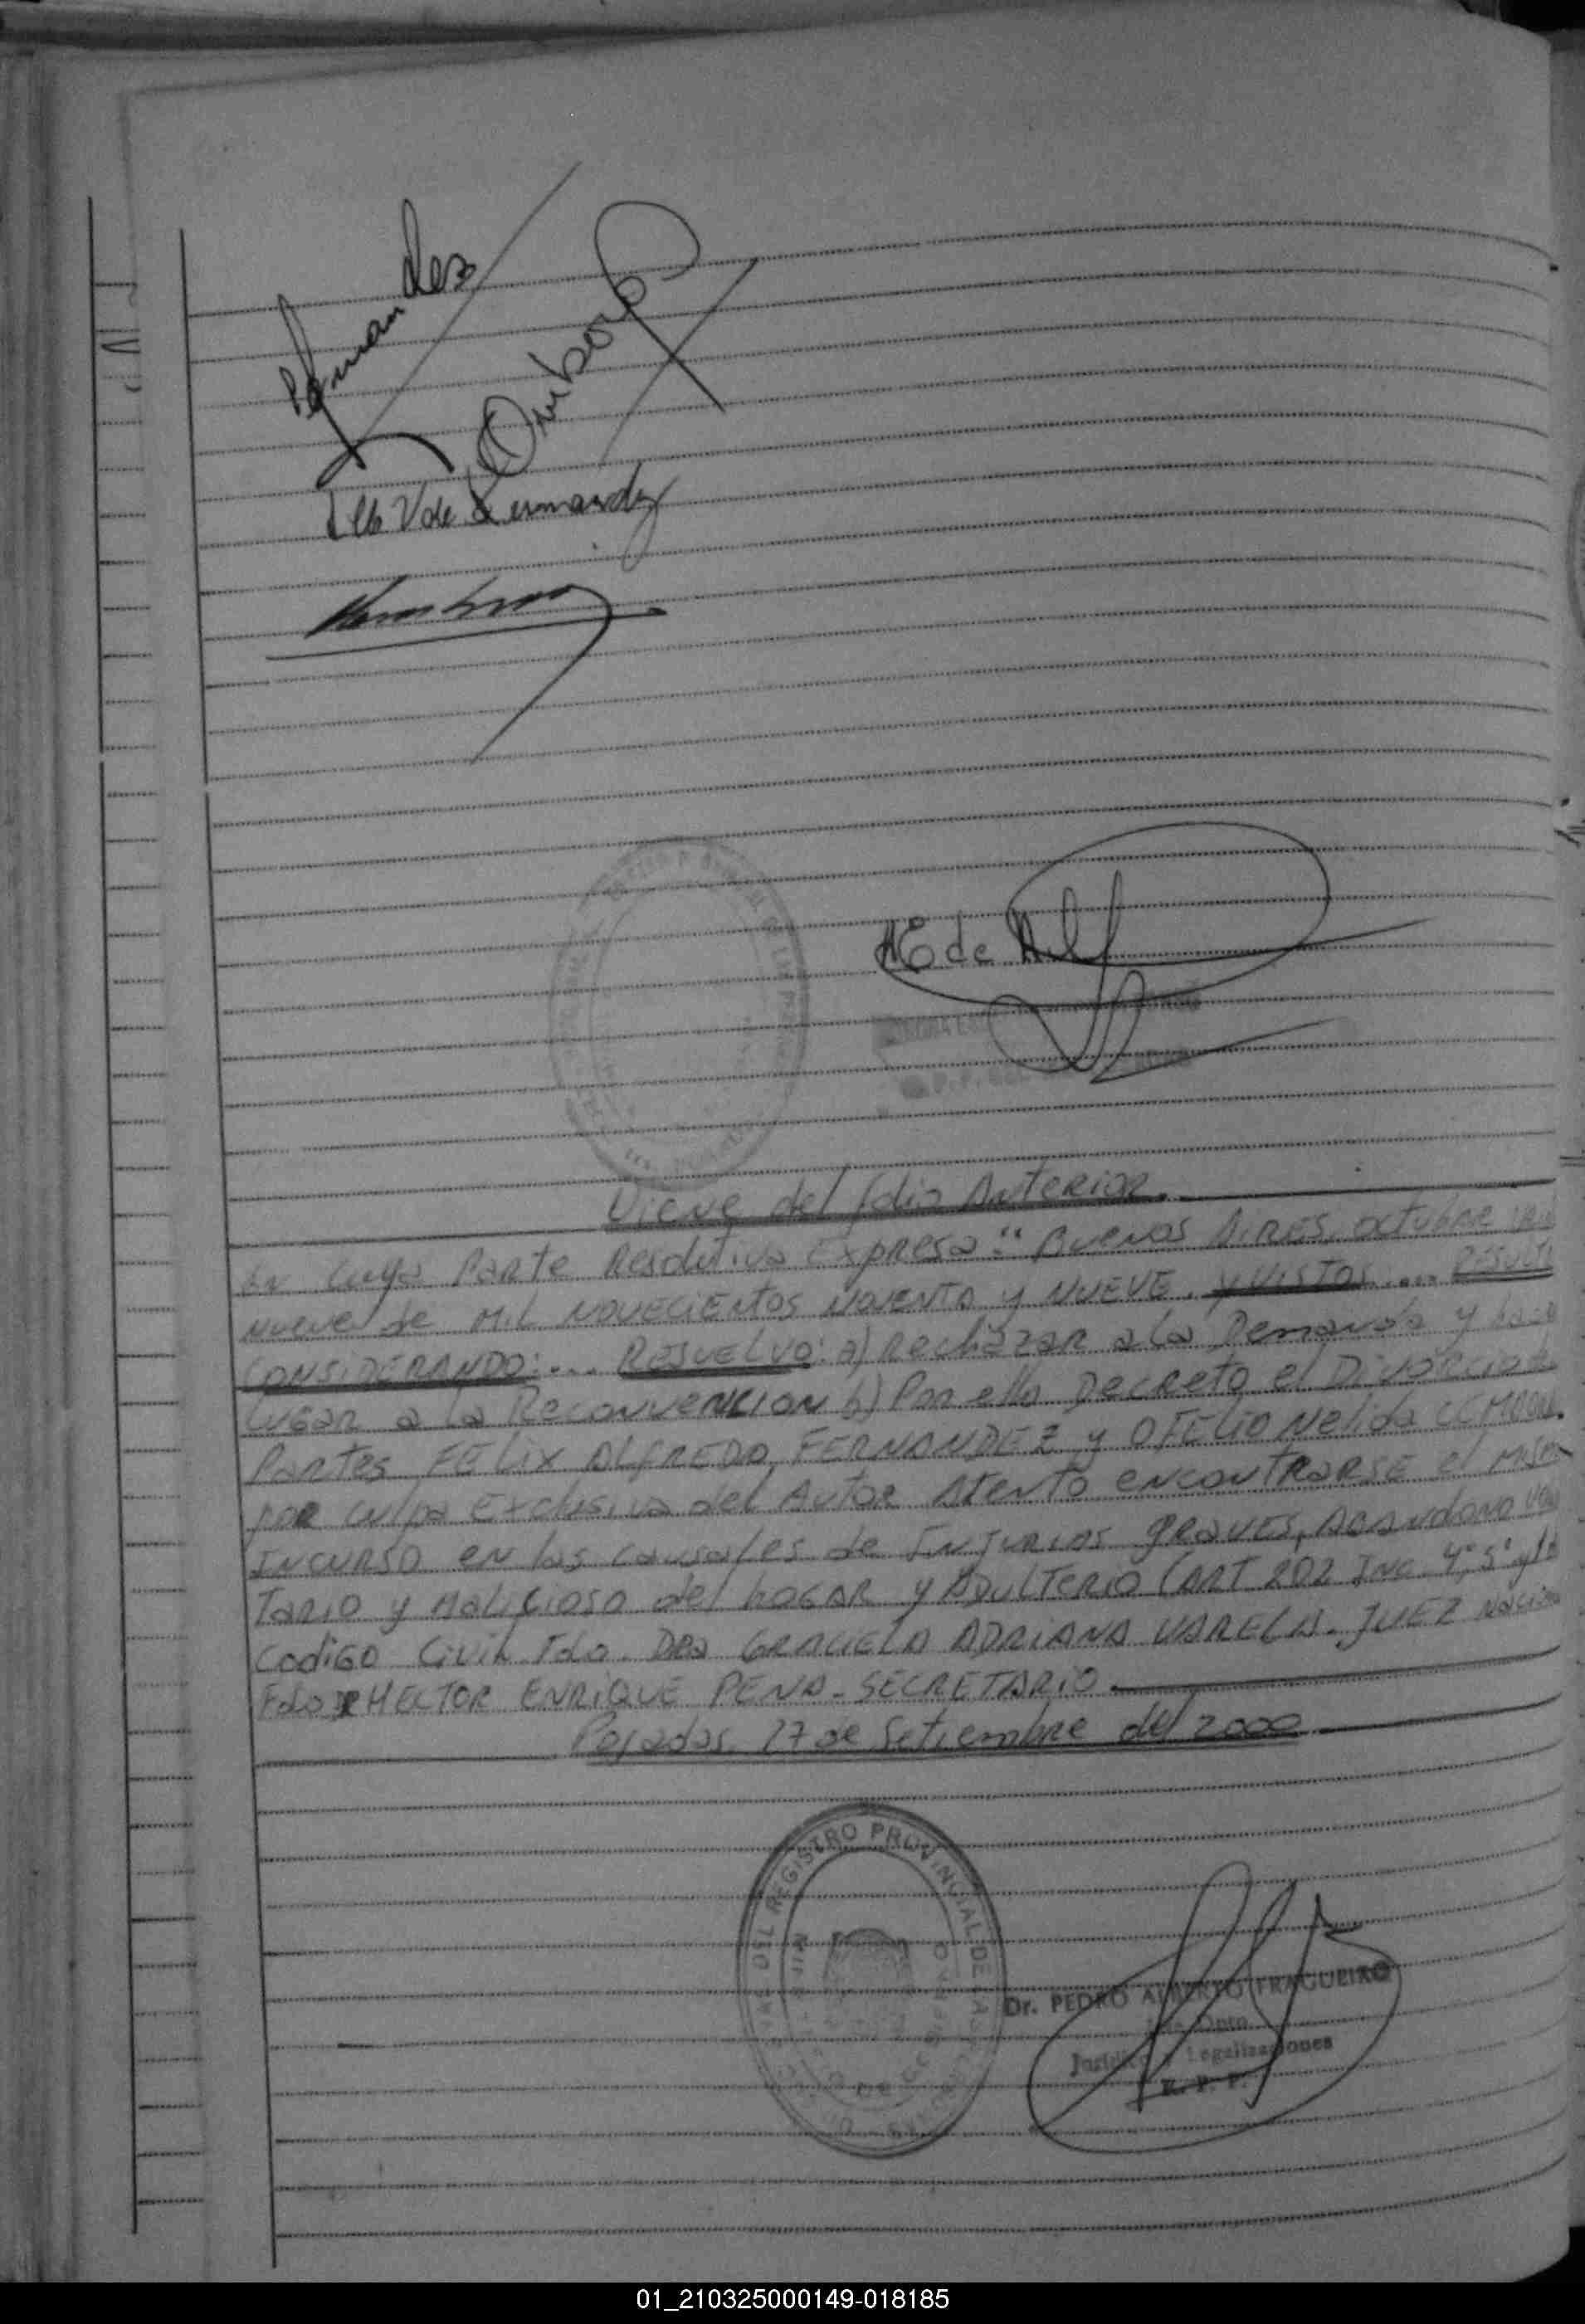 Fernandez
de Fernandez
Viene del folio Anterior.
en cuya Parte Resolutiva Expresa: " BUENOS AIRES, octubre
nueve de Mil NOVECIENTOS NOVENTA y NUEVE. Y VISTOS:... RESULT
CONSIDERANDO:... RESUELVO: a) Rechazar a la Demanda y hace
lugar a la Reconvención b) Por ello Decreto el Divorcio de
Partes FELIX ALFREDO FERNANDEZ y OFELIO Nelida
por culpa Exclusiva del Autor Atento encontrarse el Mismo
INCURSO en las causales de INJURIAS graves, abandono volu
Tario y Malicioso del hogar y ADULTERIO (ART 202 INC. 4°, 5° y 1°
Codigo Civil Fdo. DRA GRACIELA ADRIANA VARELA. JUEZ Naciona
Fdo DR HECTOR ENRIQUE PENA - SECRETARIO.
Posadas, 27 de Setiembre del 2000
DEL REGISTRO PROVINCIAL DE LAS PERSONAS
Dr. PEDRO ALBERTO FRAGUEIRO
Jefe Dpto.
Jurídico y Legalizaciones
R. P. P.
01_210325000149-018185